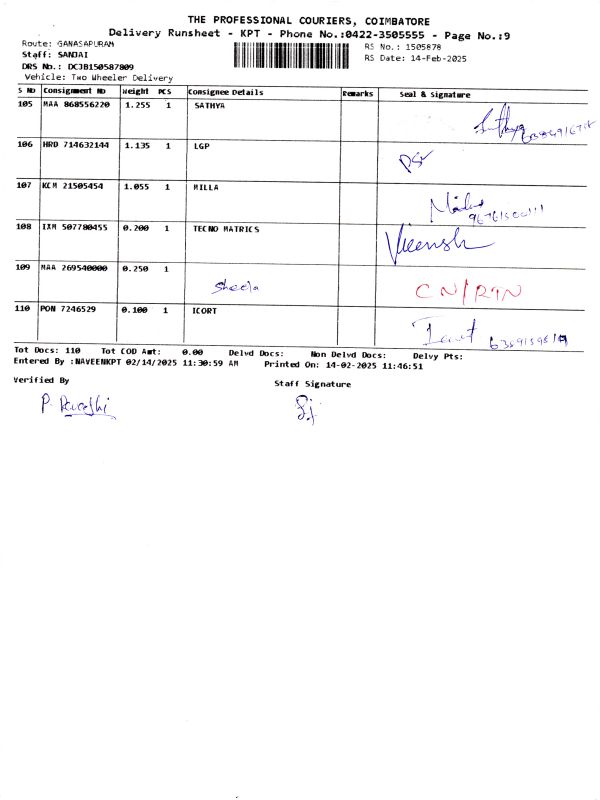 THE PROFESSIONAL COURIERS, COIMBATORE
Delivery Runsheet - KPT - Phone No.:0422-3505555 - Page No.:9
Route: GANASAPURAM
RS No.: 1505878
Staff: SANJAI
RS Date: 14-Feb-2025
DRS No.: DCJB150587809
Vehicle: Two Wheeler Delivery
S No Consignment No Weight PCS Consignee Details Remarks Seal & Signature
105 MAA 868556220 1.255 1 SATHYA
106 HRD 714632144 1.135 1 LGP
107 KCM 21505454 1.055 1 MILLA
108 IXM 507780455 0.200 1 TECNO MATRICS
109 MAA 269540000 0.250 1
Sheela CN/RTN
110 PON 7246529 0.100 1 ICORT
Tot Docs: 110 Tot COD Amt: 0.00 Delvd Docs: Non Delvd Docs: Delvy Pts:
Entered By :NAVEENKPT 02/14/2025 11:30:59 AM Printed On: 14-02-2025 11:46:51
Verified By Staff Signature